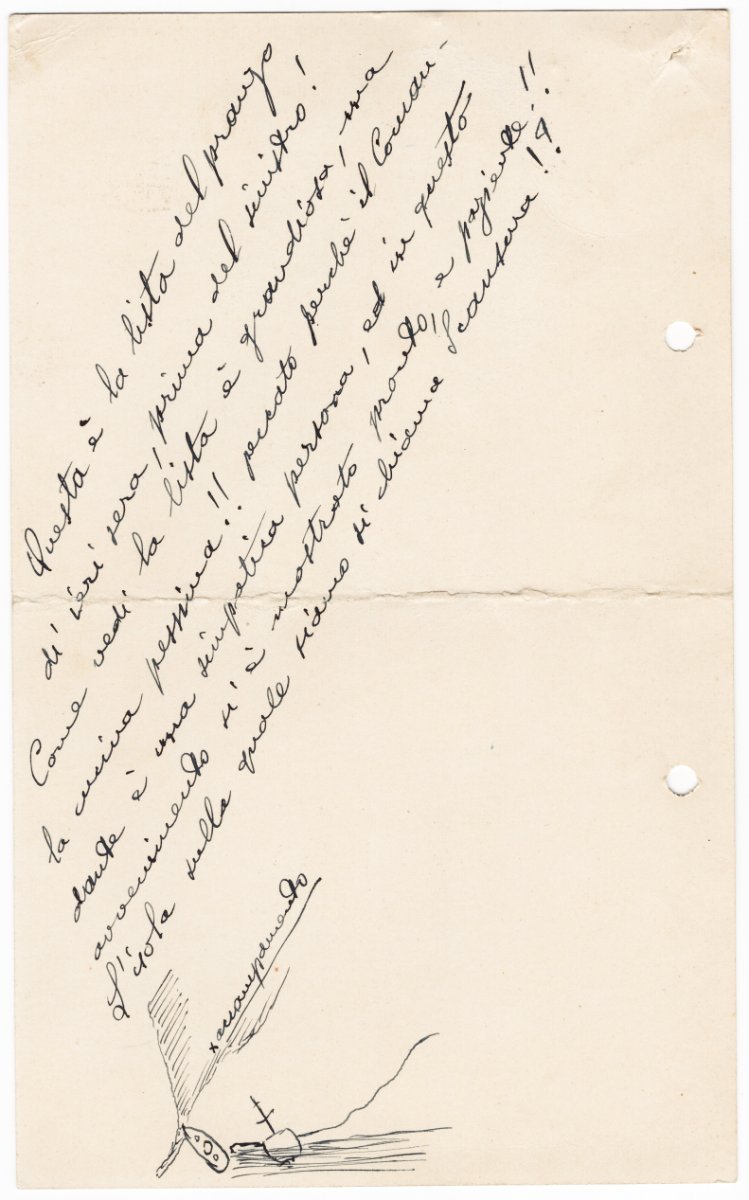 Questa è la lista del pranzo
di ieri sera, prima del sinistro!
Come vedi la lista è grandiosa, ma
la cucina pessima!! peccato perchè il Coman-
dante è una simpatica persona, ed in questo
avvenimento si è mostrato pronto, e paziente!!
L'isola sulla quale siamo si chiama !?
x accampamento